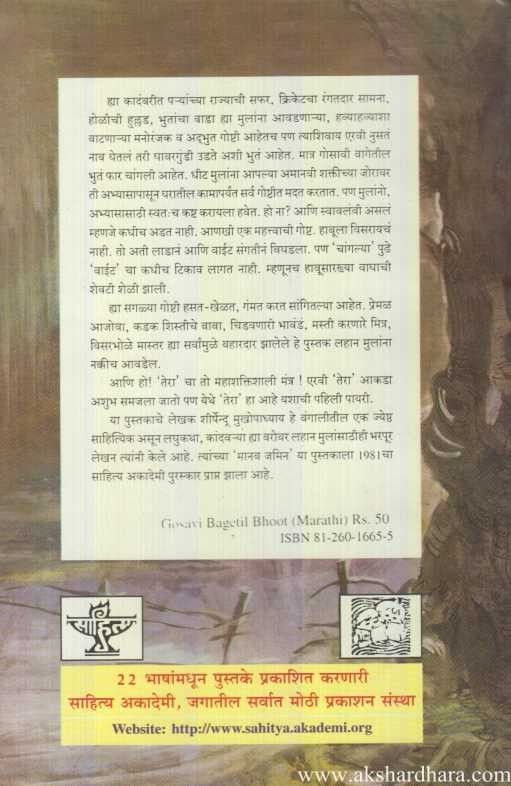 ह्या कादंबरीत पऱ्यांच्या राज्याची सफर, क्रिकेटचा रंगतदार सामना,
होळीची हुल्लड, भुतांचा वाडा ह्या मुलांना आवडणाऱ्या, हव्याहव्याशा
वाटणाऱ्या मनोरंजक व अद्भुत गोष्टी आहेतच पण त्याशिवाय एरवी नुसतं
नाव घेतलं तरी घाबरगुंडी उडते अशी भुतं आहेत. मात्र गोसावी बागेतील
भुतं फार चांगली आहेत. धीट मुलांना आपल्या अमानवी शक्तीच्या जोरावर
ती अभ्यासापासून घरातील कामापर्यंत सर्व गोष्टीत मदत करतात. पण मुलांनो,
अभ्यासासाठी स्वतःच कष्ट करायला हवेत. हो ना? आणि स्वावलंबी असलं
म्हणजे कधीच अडत नाही. आणखी एक महत्त्वाची गोष्ट. हाबूला विसरायचं
नाही. तो अती लाडानं आणि वाईट संगतीनं बिघडला. पण 'चांगल्या' पुढे
'वाईट' चा कधीच टिकाव लागत नाही. म्हणूनच हाबूसारख्या वाघाची
शेवटी शेळी झाली.
ह्या सगळ्या गोष्टी हसत-खेळत, गंमत करत सांगितल्या आहेत. प्रेमळ
आजोबा, कडक शिस्तीचे बाबा, चिडवणारी भावंडं, मस्ती करणारे मित्र,
विसरभोळे मास्तर ह्या सर्वांमुळे बहारदार झालेले हे पुस्तक लहान मुलांना
नक्कीच आवडेल.
आणि हो! 'तेरा' चा तो महाशक्तिशाली मंत्र ! एरवी 'तेरा' आकडा
अशुभ समजला जातो पण येथे 'तेरा' हा आहे यशाची पहिली पायरी.
या पुस्तकाचे लेखक शीर्षेन्दु मुखोपाध्याय हे बंगालीतील एक ज्येष्ठ
साहित्यिक असून लघुकथा, कांदबऱ्या ह्या बरोबर लहान मुलांसाठीही भरपूर
लेखन त्यांनी केले आहे. त्यांच्या 'मानव जमिन' या पुस्तकाला 1981चा
साहित्य अकादेमी पुरस्कार प्राप्त झाला आहे.
Gosavi Bagetil Bhoot (Marathi) Rs. 50
ISBN 81-260-1665-5
साहित्य
22 भाषांमधून पुस्तके प्रकाशित करणारी
साहित्य अकादेमी, जगातील सर्वात मोठी प्रकाशन संस्था
Website: http://www.sahitya.akademi.org
www.akshardhara.com